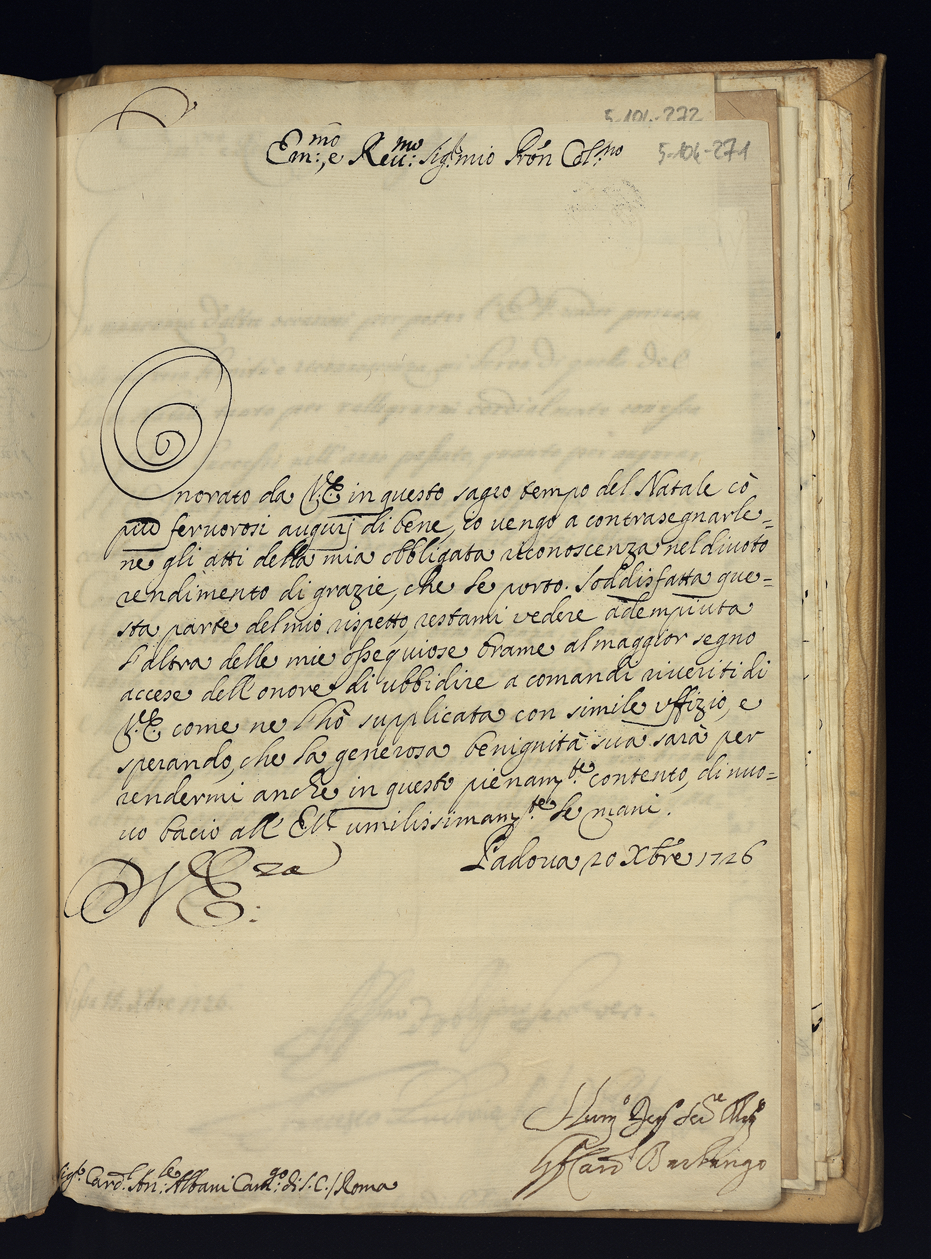 5-106-272
Em:mo, e Reu:mo Sig:r mio Prõn Col:mo
5-106-271
Onorato da V.E. in questo sagro tempo del Natale cõ
più feruorosi augurj di bene, io uengo a contrasegnarle=
ne gli atti della mia obbligata riconoscenza nel diuoto
rendimento di grazie, che le porto. Soddisfatta que=
sta parte del mio rispetto, restami vedere adempiuta
l'altra delle mie ossequiose brame al maggior segno
accese dell'onore di ubbidire a comandi riueriti di
V.E. come ne l'hò supplicata con simile uffizio, e
sperando, che la generosa benignità sua sarà per
rendermi anche in questo pienam:te contento, di nuo=
uo bacio all'E.V. umilissimam:te le mani.
Padoua 20 Xbre 1726
Hum:o
Card. Barbarigo
Sig:r Card:l An:le Albani Cam:go di S.C. / Roma